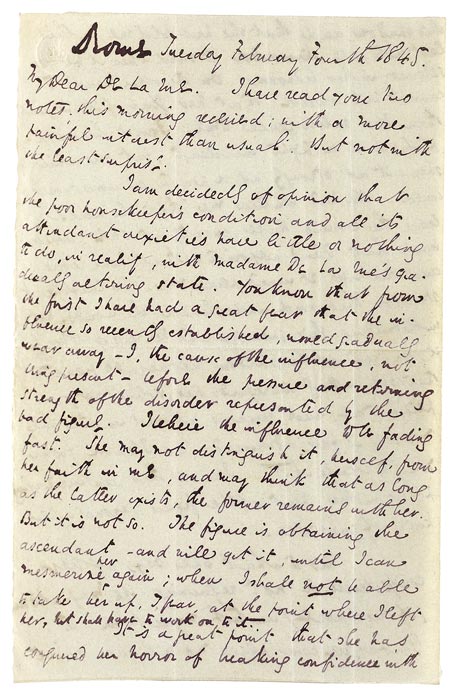 Rome Tuesday February Fourth 1845.
My Dear De La Rue. I have read your two
notes, this morning received; with a more
painful interest than usual. But not with
the least surprise.
I am decidedly of opinion that
the poor housekeeper's condition and all its
attendant anxieties have little or nothing
to do, in reality, with Madame De La Rue's gra-
dually altering state. You know that from
the first I have had a great fear that the in-
fluence so recently established, would gradually
wear away – I, the cause of the influence, not
being present – before the pressure and returning
strength of the disorder represented by the
bad figure. I believe the influence to be fading
fast. She may not distinguish it, herself, from
her faith in me, and may think that as long
as the latter exists, the former remains with her.
But it is not so. The figure is obtaining the
ascendant – and will get it, until I can
mesmerize her again; when I shall not be able
to take her up, I fear, at the point where I left
her, but shall have to work on, to it.
It is a great point that she has
conquered her horror of breaking confidence with